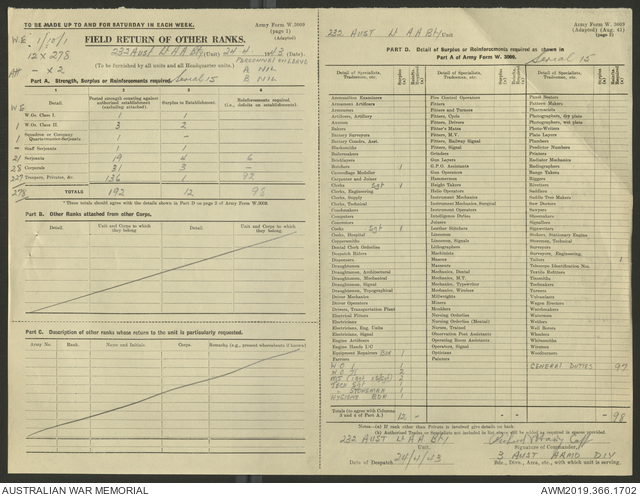 TO BE MADE UP TO AND FOR SATURDAY IN EACH WEEK.
Army Form W. 3009
(page 1)
(Adapted)
W.E. 1/10/1
12 x 278
- x 2
FIELD RETURN OF OTHER RANKS.
232 Aust Lt A A Bty (Unit) 24 4 43
PERSONNEL ON LEAVE
A NIL
B NIL
(To be furnished by all units and all Headquarter units.)
Part A. Strength, Surplus or Reinforcements required. Serial 15
1 2 3 4
Detail.
Posted strength counting against authorized establishment (excluding attached).
Surplus to Establishment.
Reinforcements required. (i.e., deficits on establishment).
W.E
W.Os. Class I. 1 1
W.Os. Class II. 3 2
1 Squadron or Company Quartermaster-Serjeants 1 -
- Staff Serjeants 1 1
21 Serjeants 19 4 6
28 Corporals 31 3 -
227 Troopers, Privates, &c. 136 1 92
278 TOTALS 192 12 98
* These totals should agree with the details shown in Part D on page 2 of Army Form W.3009.
Part B. Other Ranks attached from other Corps.
Detail.
Unit and Corps to which they belong
Detail.
Unit and Corps to which they belong
Part C. Description of other ranks whose return to the unit is particularly requested.
Army No.
Rank.
Name and Initials.
Corps.
Remarks (e.g., present whereabouts if known)
232 AUST Lt A A Bty Unit
Army Form W. 3009
(Adapted) (Aug. 41)
(page 2)
PART D. Detail of Surplus or Reinforcements required as shown in
Part A of Army Form W. 3009. Serial 15
Detail of Specialists, Tradesmen, etc.
Surplus (a)
Detail of Specialists, Tradesmen, etc.
Surplus (a)
Detail of Specialists, Tradesmen, etc.
Surplus (a)
Ammunition Examiners
Armament Artificers
Artificers
Artillery, Anzioy
Bakers
Battery Surveyors
Blacksmiths
Boilermakers
Bricklayers
Butchers 1
Camouflage Modeller
Carpenter and Joiner
Clerks Sgt 1
Clerks, Engineering
Clerks, Supply
Clerks, Technical
Coachmakers
Computors
Concretors
Cooks Sgt 1
Cooks, Hospital
Coppersmiths
Dental Clerk Orderlies
Despatch Riders
Dispensers
Draughtsmen
Draughtsmen, Architectural
Draughtsmen, Mechanical
Draughtsmen, Signal
Draughtsmen, Topographical
Driver Mechanics
Driver Operators
Drivers, Transportation Plant
Electrical Fitters
Electricians
Electricians, Eng. Units
Electricians, Signal
Engine Artificers
Engine Hands I/C
Equipment Repairers BDR 1
Farriers
W.O. I 1
W.O. II 2
HYGIENE BDR 1
Totals (to agree with Columns 3 and 4 of Part A.) 12
Fire Control Operators
Fitters
Fitters and Turners
Fitters, Cycle
Fitters, Drivers
Fitter's Mates
Fitters, M.V.
Fitters, Railway Signal
Fitters, Signal
Grinders
Gun Layers
Gun Operators
Hammermen
Height Takers
Helio Operators
Instrument Mechanics
Instrument Mechanics, Surgical
Instrument Operators
Intelligence Duties
Joiners
Leather Stitchers
Linesmen
Linesmen, Signals
Lithographers
Machinists
Masons
Masseurs
Mechanics, Dental
Mechanics, M.T.
Mechanics, Typewriter
Mechanics, Wireless
Millwrights
Miners
Moulders
Nursing Orderlies
Nursing Orderlies (Mental)
Nurses, Trained
Observation Post Assistants
Operating Room Assistants
Operators, Signal
Opticians
Painters
Panel Beaters
Pattern Makers
Pharmacists
Photographers, dry plate
Photographers, wet plate
Photo-Writers
Plate Layers
Plumbers
Predictor Numbers
Printers
Radiator Mechanics
Radiographers
Range Takers
Riggers
Rivetters
Saddlers
Saddle Tree Makers
Saw Doctors
Sawyers
Shoemakers
Signallers
Signwriters
Stokers, Stationary Engine
Storemen, Technical
Surveyors
Surveyors, Engineering
Tailors 1
Telescope Identification Nos.
Textile Refitters
Tinsmiths
Turners
Vulcanizers
Wagon Erectors
Watchmakers
Watermen
Welders
Well Borers
Wheelers
Whitesmiths
Wiremen
Woodturners
GENERAL DUTIES 97
- 98
Notes—(a) If rank other than Private is involved give details on back.
(b) Authorized Trades or Specialists not included in list above will be added in spaces provided.
232 AUST Lt A A Bty
Unit.
Capt
Signature of Commander.
Date of Despatch 24/4/43
3 AUST ARMD DIV
Bde., Divn., Area, etc., with which unit is serving.
AUSTRALIAN WAR MEMORIAL
AWM2019.366.1702